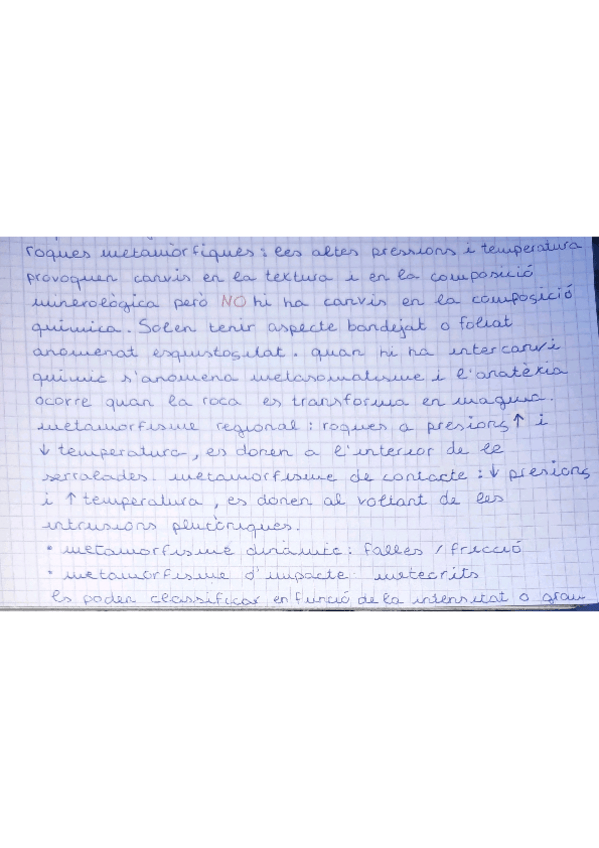 roques metamòrfiques: les altes pressions i temperatura
provoquen canvis en la textura i en la composició
minerològica però NO hi ha canvis en la composició
química. Solen tenir aspecte bandejat o foliat
anomenat esquistositat. quan hi ha intercanvi
químic s'anomena metasomatisme i l'anatèxia
ocorre quan la roca es transforma en magma.
metamorfisme regional: roques a presions ↑ i
↓ temperatura, es donen a l'interior de le
serralades. metamorfisme de contacte: ↓ presions
i ↑ temperatura, es donen al voltant de les
intrusions plutòniques.
• metamorfisme dinàmic: falles / fricció
• metamorfisme d'impacte: meteorits
Es poden classificar en funció de la intensitat o grau